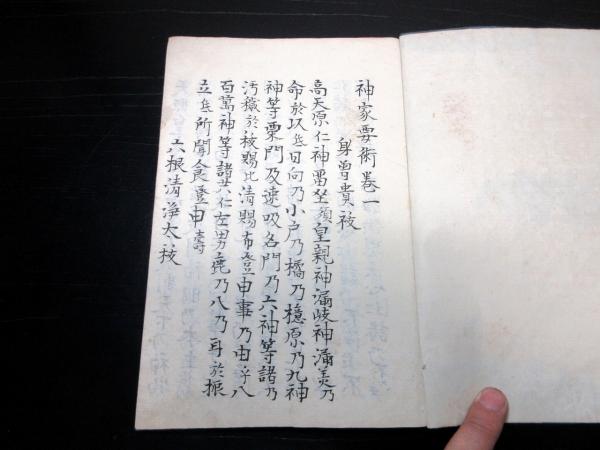 神家要術巻一
身曽貴祓
高天原仁神畄坐須皇親神漏岐神漏美乃
命於以氐日向乃小戸乃橘乃檍原乃九神
神等粟門及速吸名門乃六神等諸乃
汚穢於祓賜比清賜布登申事乃由乎八
百萬神等諸共仁左男鹿乃八乃耳於振
立氐所聞食登申寿
六根清浄太祓